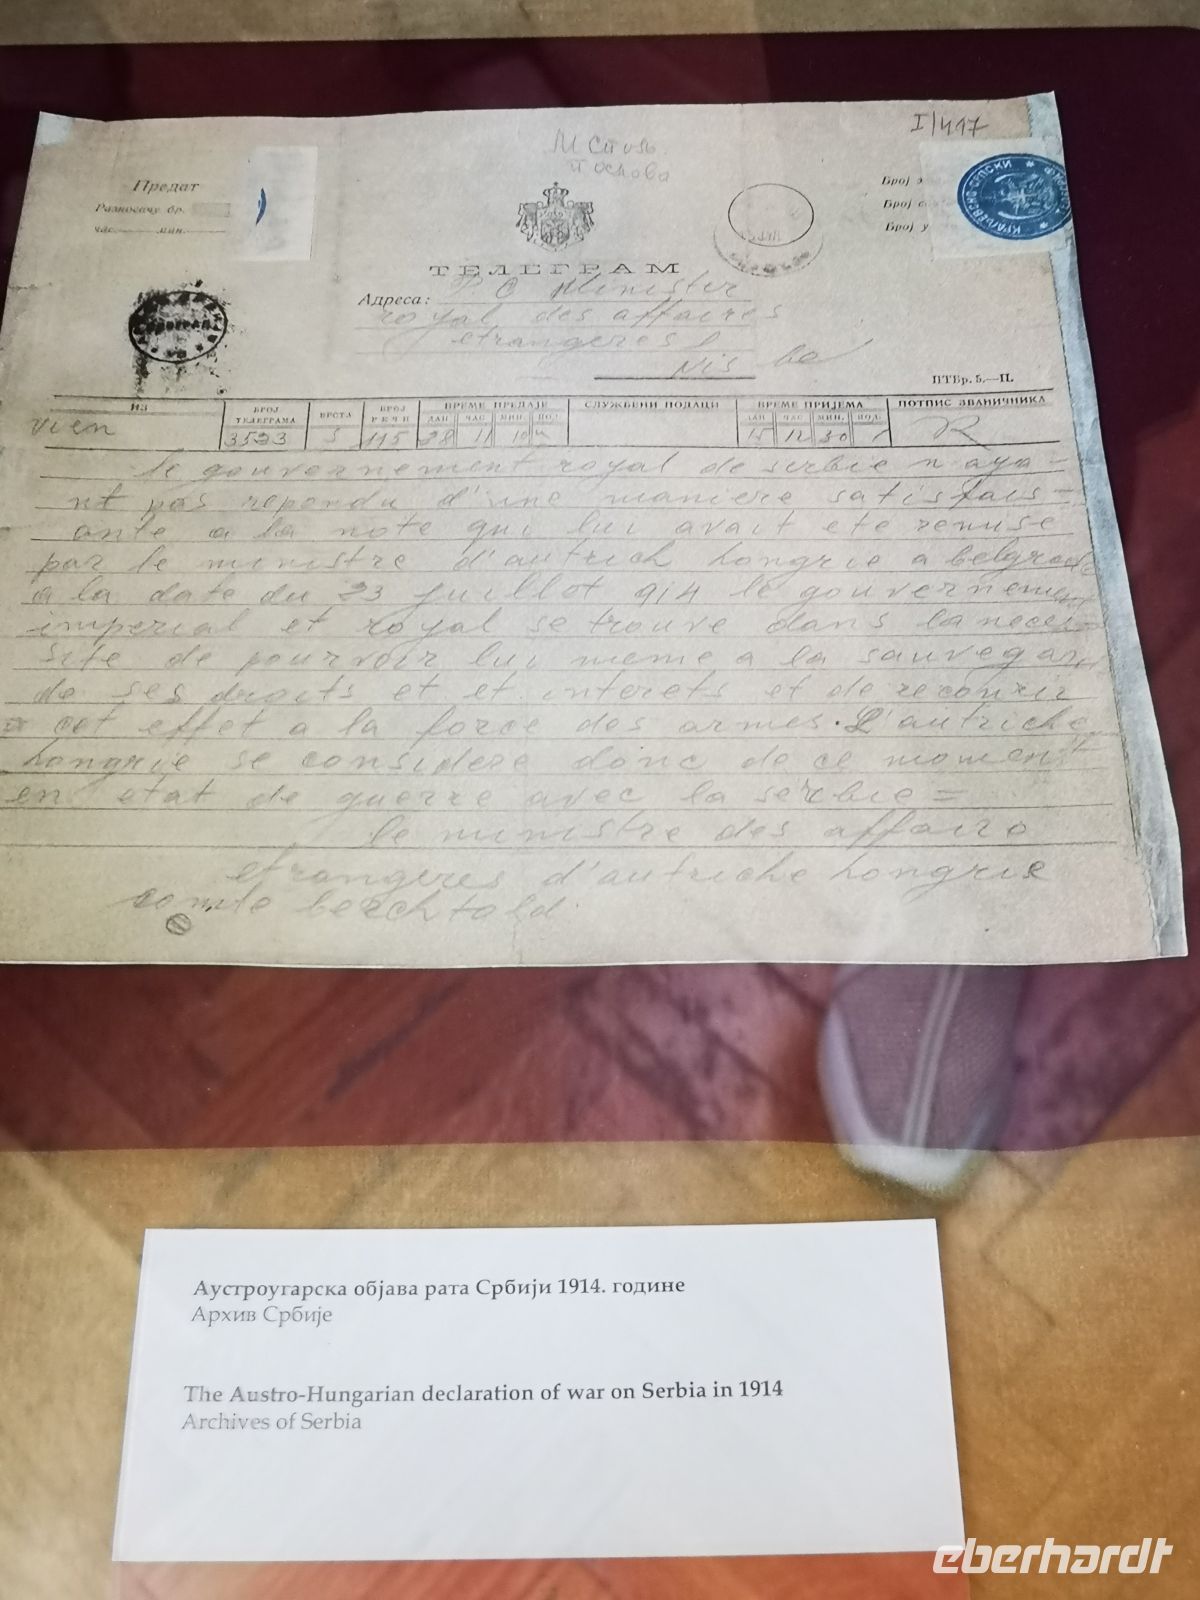 I/417
М Спољ.
послова
Предат
Разносачу бр.
час. мин.
Број
Број
Број у
КРАЉЕВСКО-СРПСКИ
ТЕЛЕГРАМ
Адреса: P. C Minister
royal des affaires
etrangeres
Nis
ПТБр. 5.—П.
ИЗ БРОЈ ТЕЛЕГРАМА ВРСТА БРОЈ РЕЧИ ВРЕМЕ ПРЕДАЈЕ СЛУЖБЕНИ ПОДАЦИ ВРЕМЕ ПРИЈЕМА ПОТПИС ЗВАНИЧНИКА
ДАН ЧАС МИН. ПОД. ДАН ЧАС МИН. ПОД.
vien 3523 S 115 28 11 10 15 12 30
le gouvernement royal de serbie n aya-
nt pas repondu d'une maniere satisfais-
ante a la note qui lui avait ete remise
par le ministre d'autrich hongrie a belgrade
a la date du 23 juillot 914 le gouvernement
imperial et royal se trouve dans la neces-
site de pourvoir lui meme a la sauvegar
de ses droits et et interets et de recourir
a cet effet a la force des armes. L'autriche
hongrie se considere donc de ce moment
en etat de guerre avec la serbie =
le ministre des affairo
etrangeres d'autriche hongrie
comte berchtold.
Аустроугарска објава рата Србији 1914. године
Архив Србије
The Austro-Hungarian declaration of war on Serbia in 1914
Archives of Serbia
eberhardt